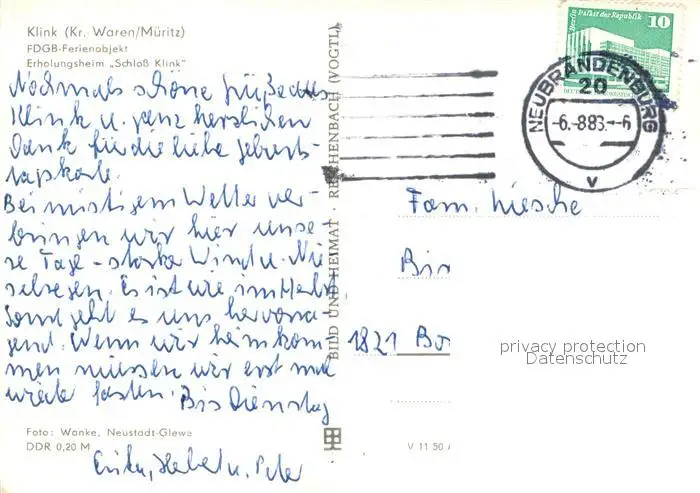 Klink (Kr. Waren/Müritz)
FDGB-Ferienobjekt
Erholungsheim „Schloß Klink"
Nochmals schöne Grüße aus
Klink u. ganz herzlichen
Dank für die liebe Geburts-
tagskarte.
Bei mistigem Wetter ver-
bringen wir hier unse-
re Tage - starker Wind u. Nie
selregen. Es ist wie im Herbst,
sonst geht es uns hervorra-
gend. Wenn wir heimkom
men müssen wir erst mal
wieder fasten. Bis Dienstag
Foto: Wanke, Neustadt-Glewe
DDR 0,20 M
BILD UND HEIMAT REICHENBACH (VOGTL)
Berlin Palast der Republik
10
NEUBRANDENBURG
20
-6.-8.83.-6
V
Fam.
1821
privacy protection
Datenschutz
V 11 50